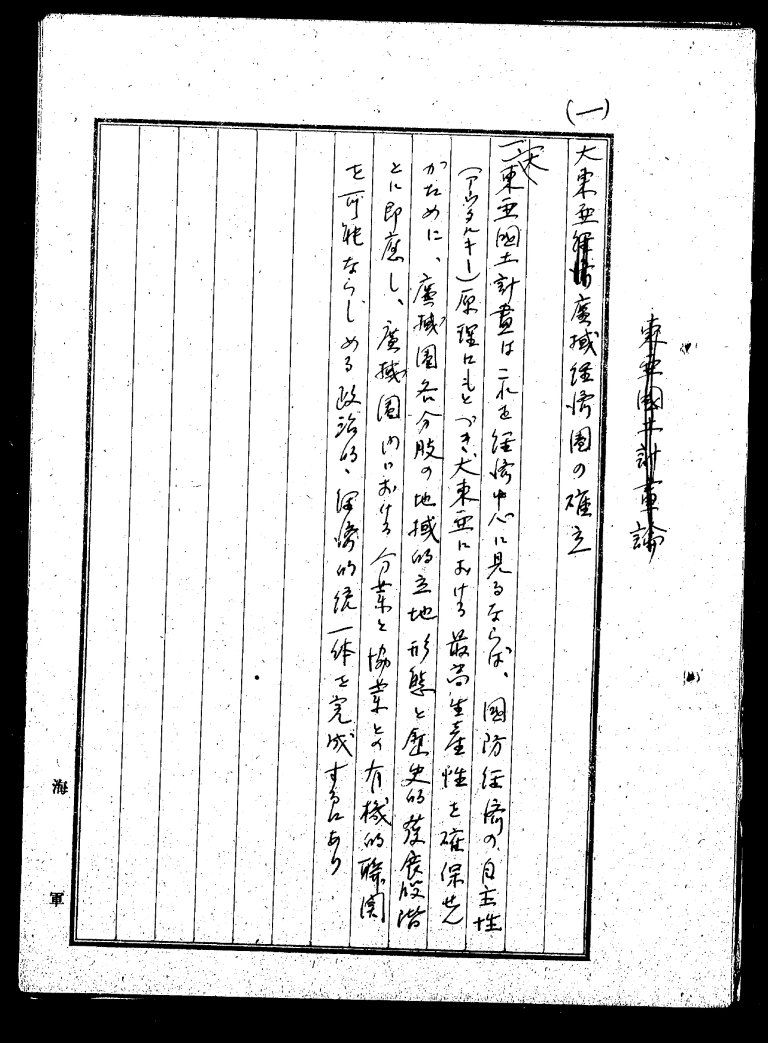 東亜國土計畫論
(一)
大東亜経済廣域経済圏の確立
一、大東亜國土計畫は これを 経済中心に見るならば、國防経済の自主性
(アウタルキー)原理にもとづき、大東亜における最高生産性を確保せん
がために、廣域圏各分肢の地域的立地形態と歴史的發展段階
とに即應し、廣域圏内における分業と協業との有機的聯関
を可能ならしめる政治的、経済的統一体を完成するにあり
海軍